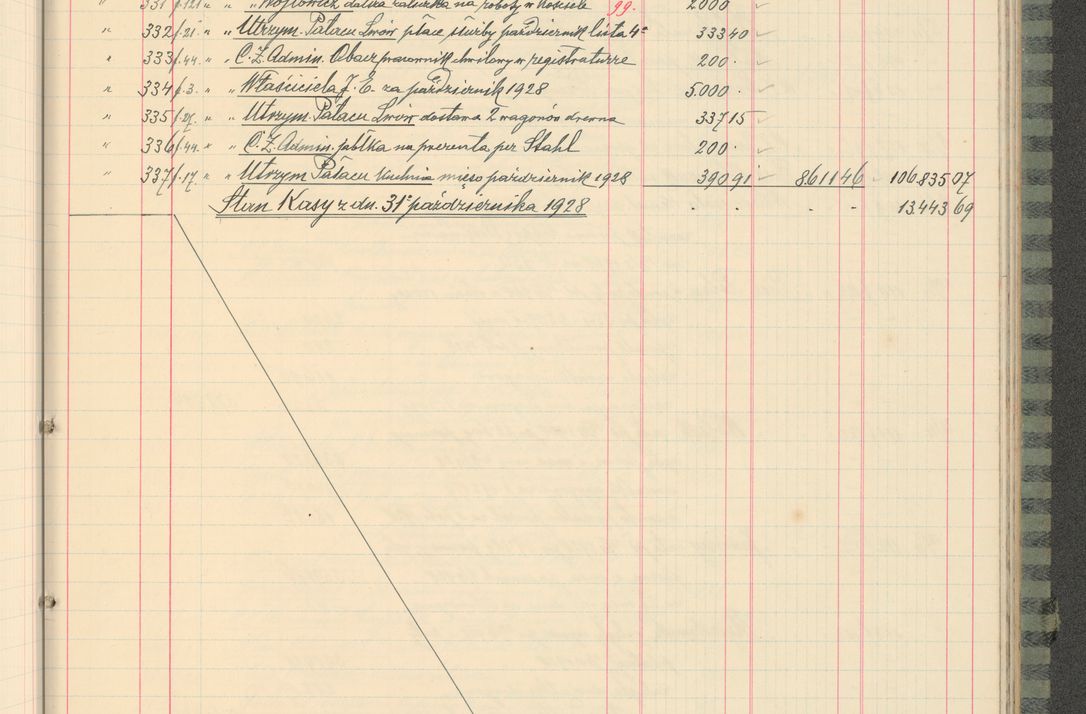 " 331 f.121 " " Wójtowicz dalsza zaliczka na roboty w kościele 99. 2000
" 332 f.21. " " Utrzym. Pałacu Lwów płace służby październik lista 4ª 333 40
" 333 f.44. " " C.Z. Admin. pracownik chwilowy w registraturze 200 .
" 334 f.3. " " Właściciela J.E. za październik 1928 5.000 .
" 335 f.27. " " Utrzym. Pałacu Lwów dostawa 2 wagonów drewna 337 15
" 336 f.44. " " C.Z. Admin. jabłka na prezenta per Stahl 200 .
" 337 f.17. " " Utrzym Pałacu kuchnia mięso październik 1928 390 91 8611 46 106.835 07
Stan Kasy z dn. 31º października 1928 . . . - 13.443 69